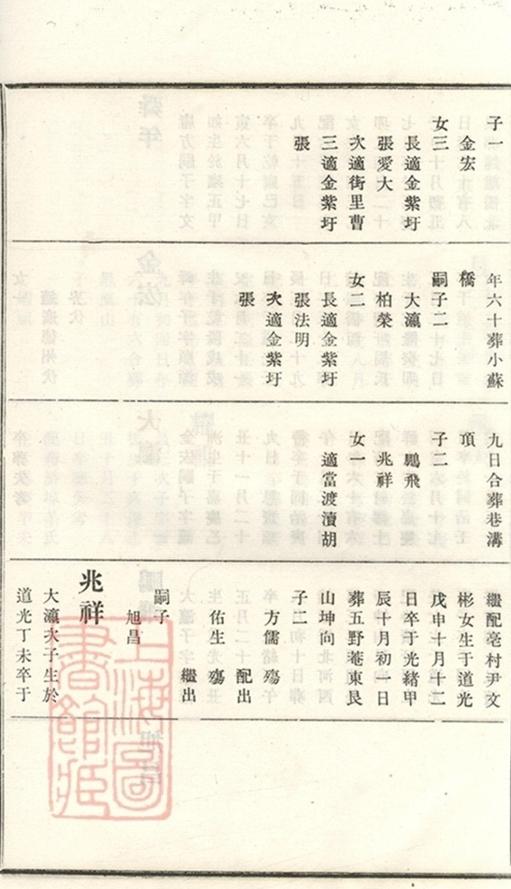 子一
金宏
女三
長適金紫圩
張愛大
次適街里曹
三適金紫圩
張
年六十葬小蘇
橋
嗣子二
大瀛
柏榮
女二
長適金紫圩
張法明
次適金紫圩
張
九日合葬巷溝
頂
子二
鵬飛
兆祥
女一
適當渡瀆胡
繼配亳村尹文
彬女生于道光
戊申十月十二
日卒于光緒甲
辰十月初一日
葬五野菴東艮
山坤向
子二
方儒殤 配出
佑生殤 繼出
嗣子
旭昌
兆祥
大瀛次子生於
道光丁未卒于
上海圖書館藏